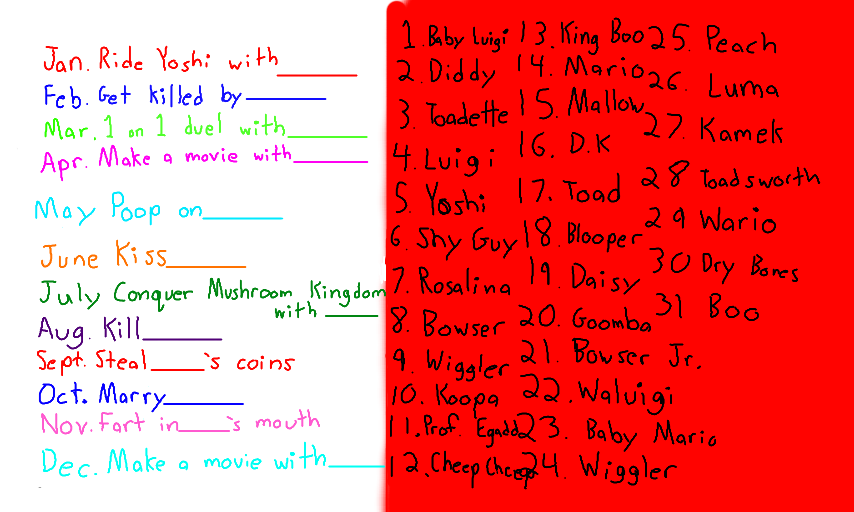 Jan. Ride Yoshi with
Feb. Get killed by
Mar. 1 on 1 duel with
Apr. Make a movie with
May Poop on
June Kiss
July Conquer Mushroom Kingdom
with
Aug. Kill
Sept. Steal 's coins
Oct. Marry
Nov. Fart in 's mouth
Dec. Make a movie with
1. Baby Luigi
2. Diddy
3. Toadette
4. Luigi
5. Yoshi
6 Shy Guy
7. Rosalina
8. Bowser
9. Wiggler
10. Koopa
11. Prof. Egadd
12. Cheep Cheep
13. King Boo
14. Mario
15. Mallow
16. D.K
17. Toad
18. Blooper
19. Daisy
20. Goomba
21. Bowser Jr.
22. Waluigi
23. Baby Mario
24. Wiggler
25. Peach
26. Luma
27. Kamek
28 Toadsworth
29 Wario
30 Dry Bones
31 Boo